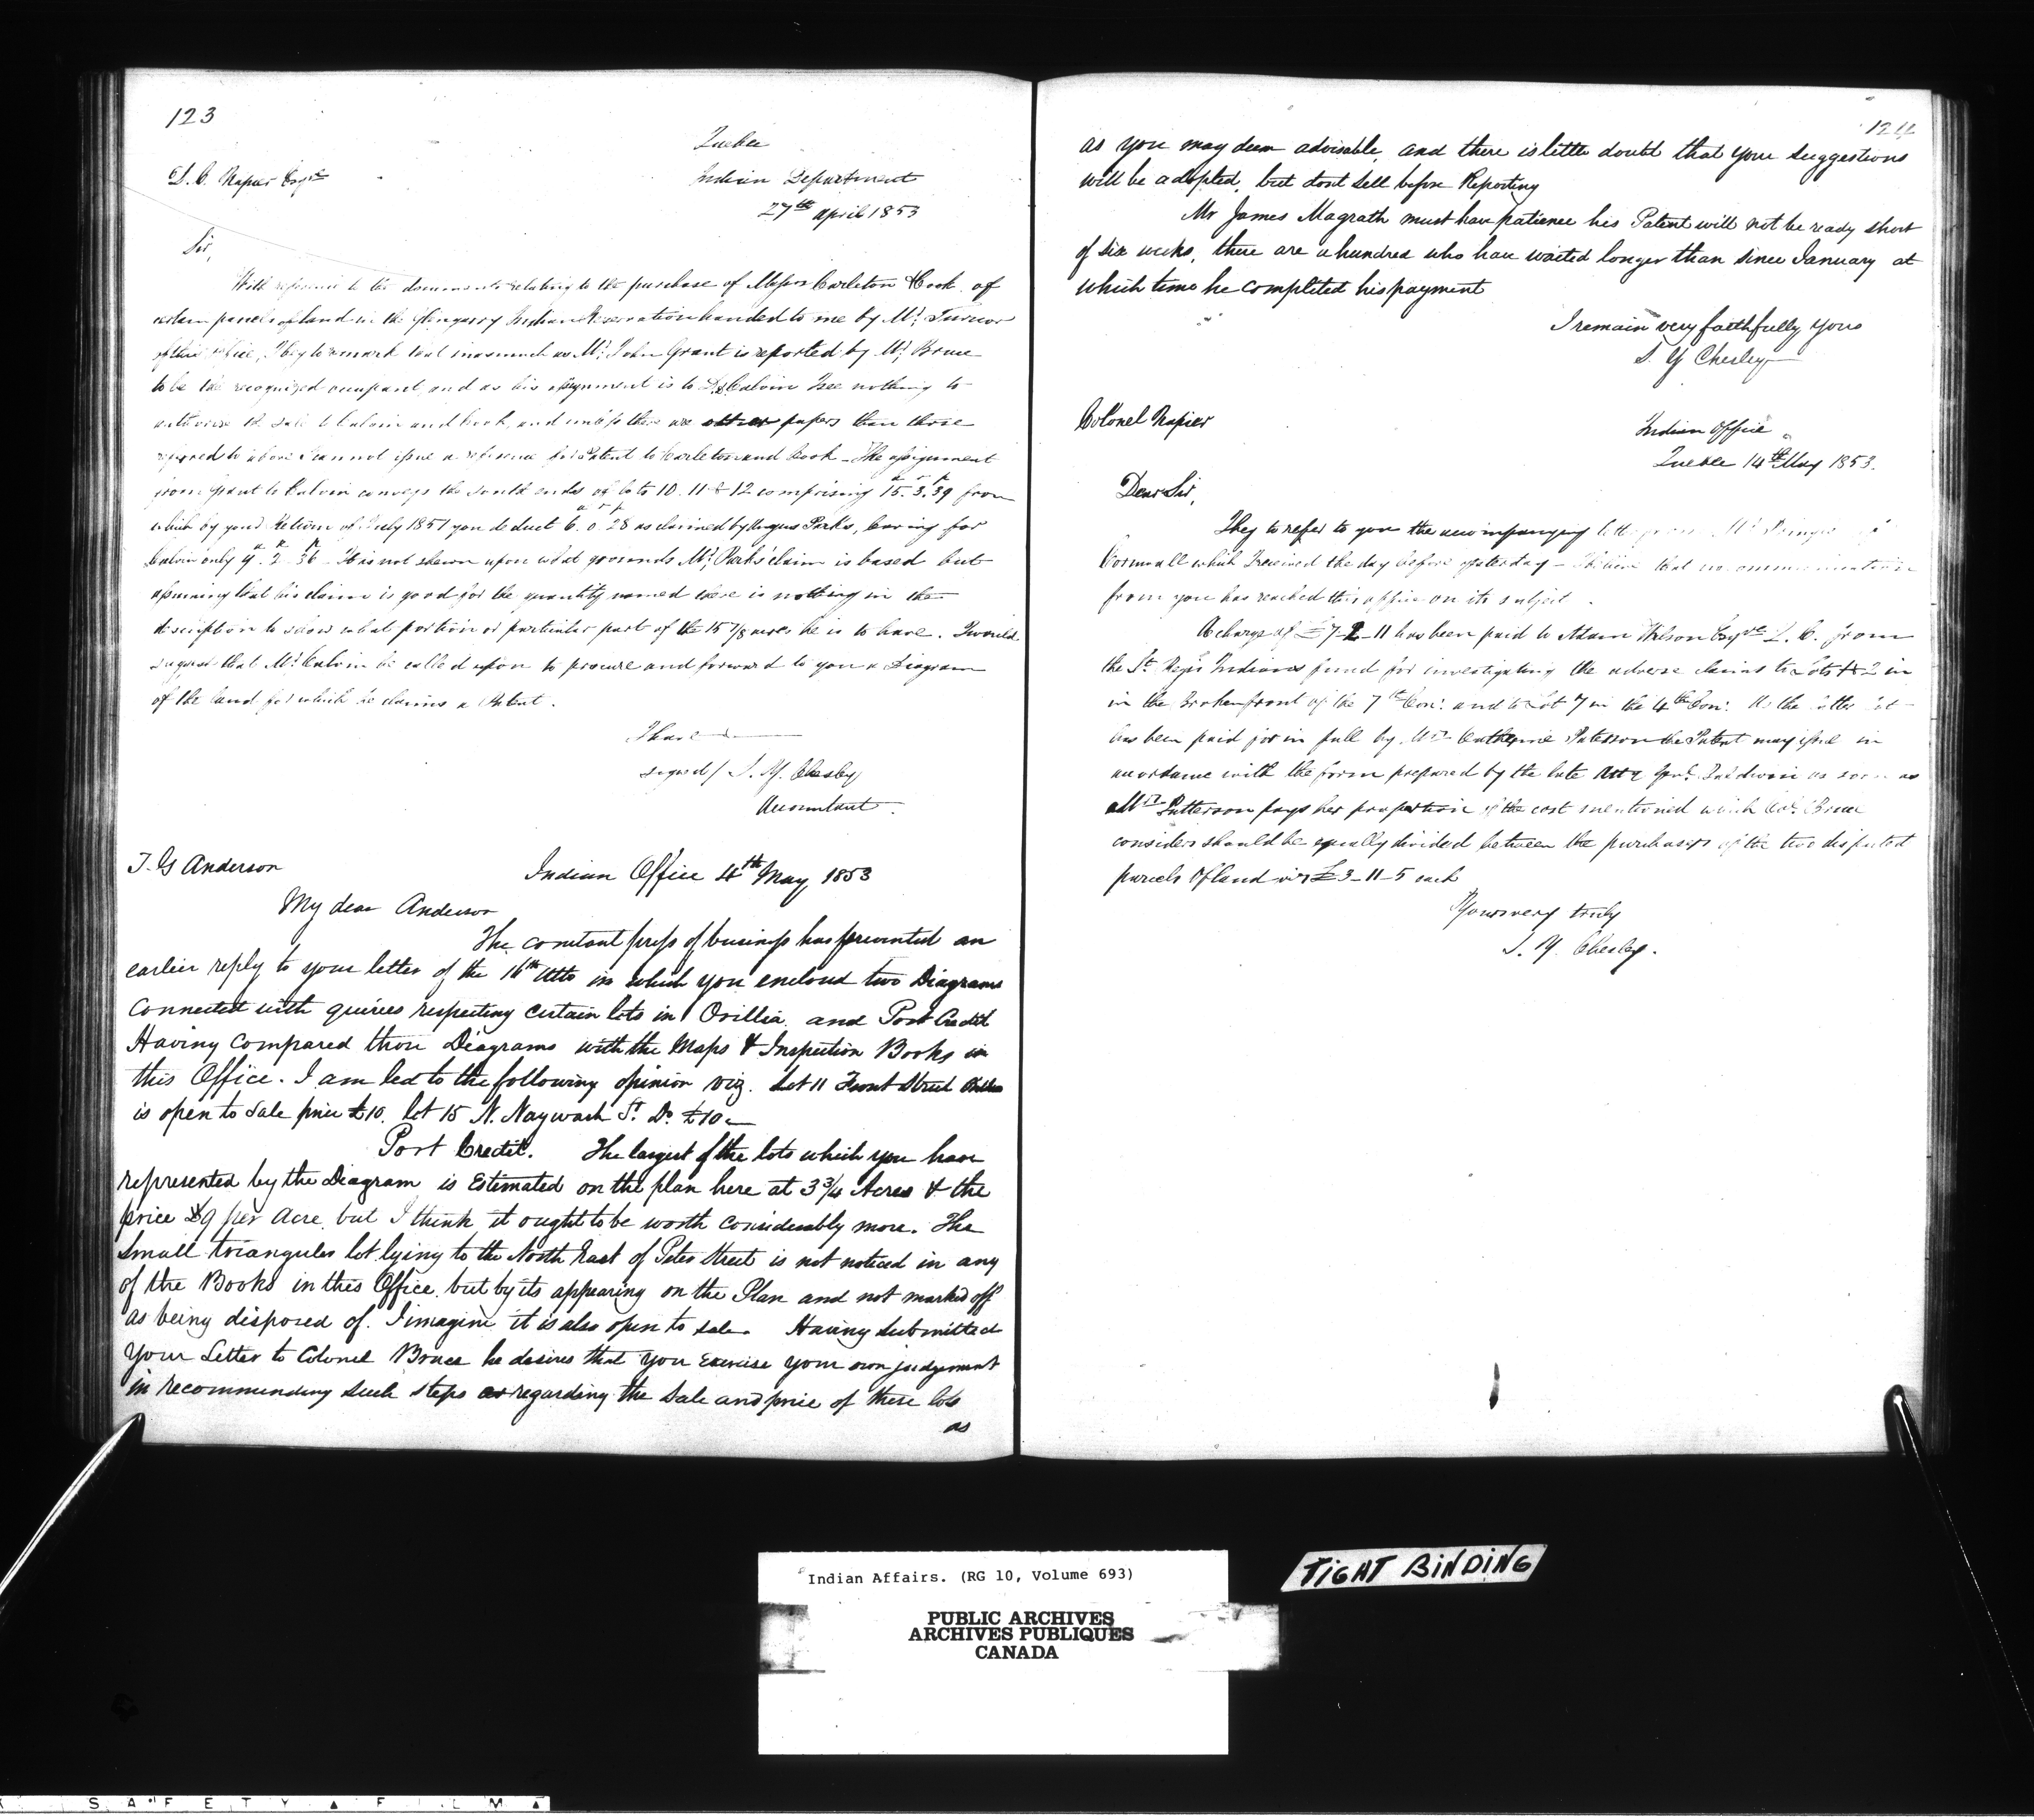 123
Quebec
D. C. Napier Esqre
Indian Department
27th April 1853
Sir,
With reference to the documents relating to the purchase of Messrs Carleton & Cook of
certain parcels of land in the Glengarry Indian Reservation handed to me by Mr. Turner
of this office, I beg to remark that inasmuch as Mr. John Grant is reported by Mr. Bruce
to be the recognized occupant, and as his assignment is to D. Calvin I see nothing to
authorise the sale to Calvin and Cook, and unless there are other papers than those
referred to above I cannot issue a reference for Patent to Carleton and Cook – The assignment
from Grant to Calvin conveys the south ends of lots 10. 11 & 12 comprising 15. 3. 39 from
which by your Return of July 1851 you deduct 6. 0. 28 as claimed by Angus Parks, leaving for
Calvin only 9. 2. 36 – It is not shewn upon what grounds Mr. Park's claim is based but
assuming that his claim is good for the quantity named there is nothing in the
description to shew what portion or particular part of the 15 7/8 acres he is to have. I would
suggest that Mr. Calvin be called upon to procure and forward to you a Diagram
of the land for which he claims a Patent.
I have
signed/ S. Y. Chesley
Accountant.
T. G Anderson
Indian Office 4th May 1853
My dear Anderson
The constant press of business has prevented an
earlier reply to your letter of the 16th Ulto in which you enclosed two Diagrams
connected with queries respecting certain lots in Orillia and Port Credit
Having compared those Diagrams with the Maps & Inspection Books in
this Office. I am led to the following opinion viz. Lot 11 Front Street Orillia
is open to Sale price £10. lot 15 N. Naywash St. Do. £10
Port Credit. The largest of the lots which you have
represented by the Diagram is Estimated on the plan here at 3¾ Acres & the
price £9 per Acre but I think it ought to be worth considerably more. The
Small triangular lot lying to the North East of Peter Street is not noticed in any
of the Books in this Office but by its appearing on the Plan and not marked off
as being disposed of. I imagine it is also open to sale. Having submitted
your Letter to Colonel Bruce he desires that you Exercise your own judgement
in recommending such steps as regarding the Sale and price of these lots
as
124
as you may deem advisable, and there is little doubt that your suggestions
will be adopted, but dont sell before Reporting
Mr James Magrath must have patience his Patent will not be ready short
of six weeks, there are a hundred who have waited longer than since January at
which time he completed his payment
I remain very faithfully yours
S. Y Chesley
Colonel Napier
Indian Office
Quebec 14th May 1853.
Dear Sir,
I beg to refer to you the accompanying letter from Mr Pringle of
Cornwall which I received the day before yesterday – I believe that no communication
from you has reached this office on its subject.
A charge of £7-2-11 has been paid to Adam Wilson Esqre Q. C. from
the St. Regis Indians fund for investigating the adverse claims to Lots 1 & 2 in
in the Broken front of the 7th Con: and to Lot 7 in the 4th Con: As the latter lot
has been paid for in full by Mrs Catherine Paterson the Patent may issue in
accordance with the form prepared by the late Atty Genl. Baldwin as soon as
Mrs Patterson pays her proportion of the cost mentioned which Col. Bruce
considers should be equally divided between the purchasers of the two disputed
parcels of land viz £3-11-5 each
Yours very truly
S. Y. Chesley.
Indian Affairs. (RG 10, Volume 693)
PUBLIC ARCHIVES
ARCHIVES PUBLIQUES
CANADA
TIGHT BINDING
S A F E T Y ▲ F I L M ▲